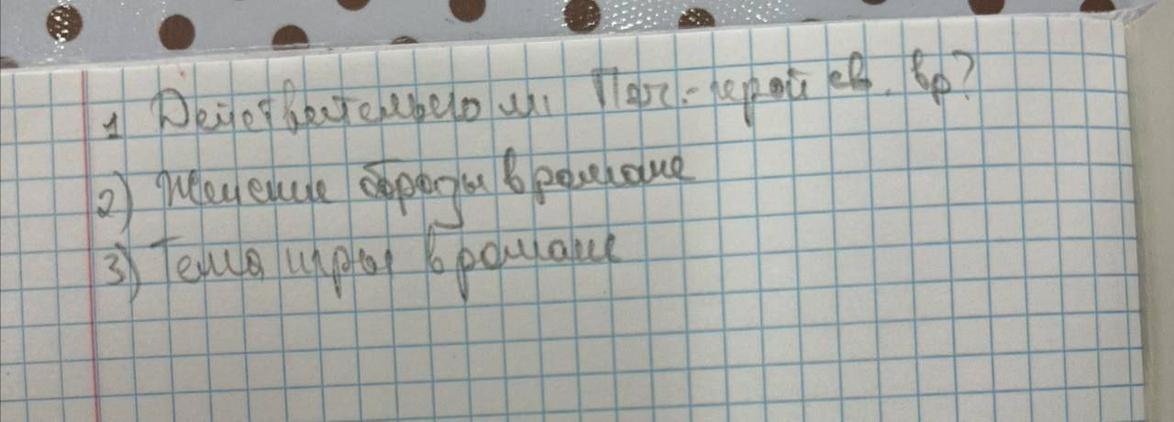 1 Действительно ли Печ.-герой св. вр?
2) Женские образы в романе
3) Тема игры в романе